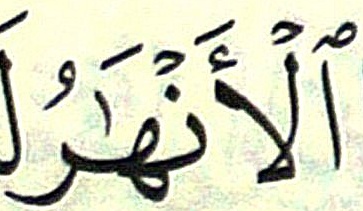 ٱلْأَنْهَـٰرُ لَ